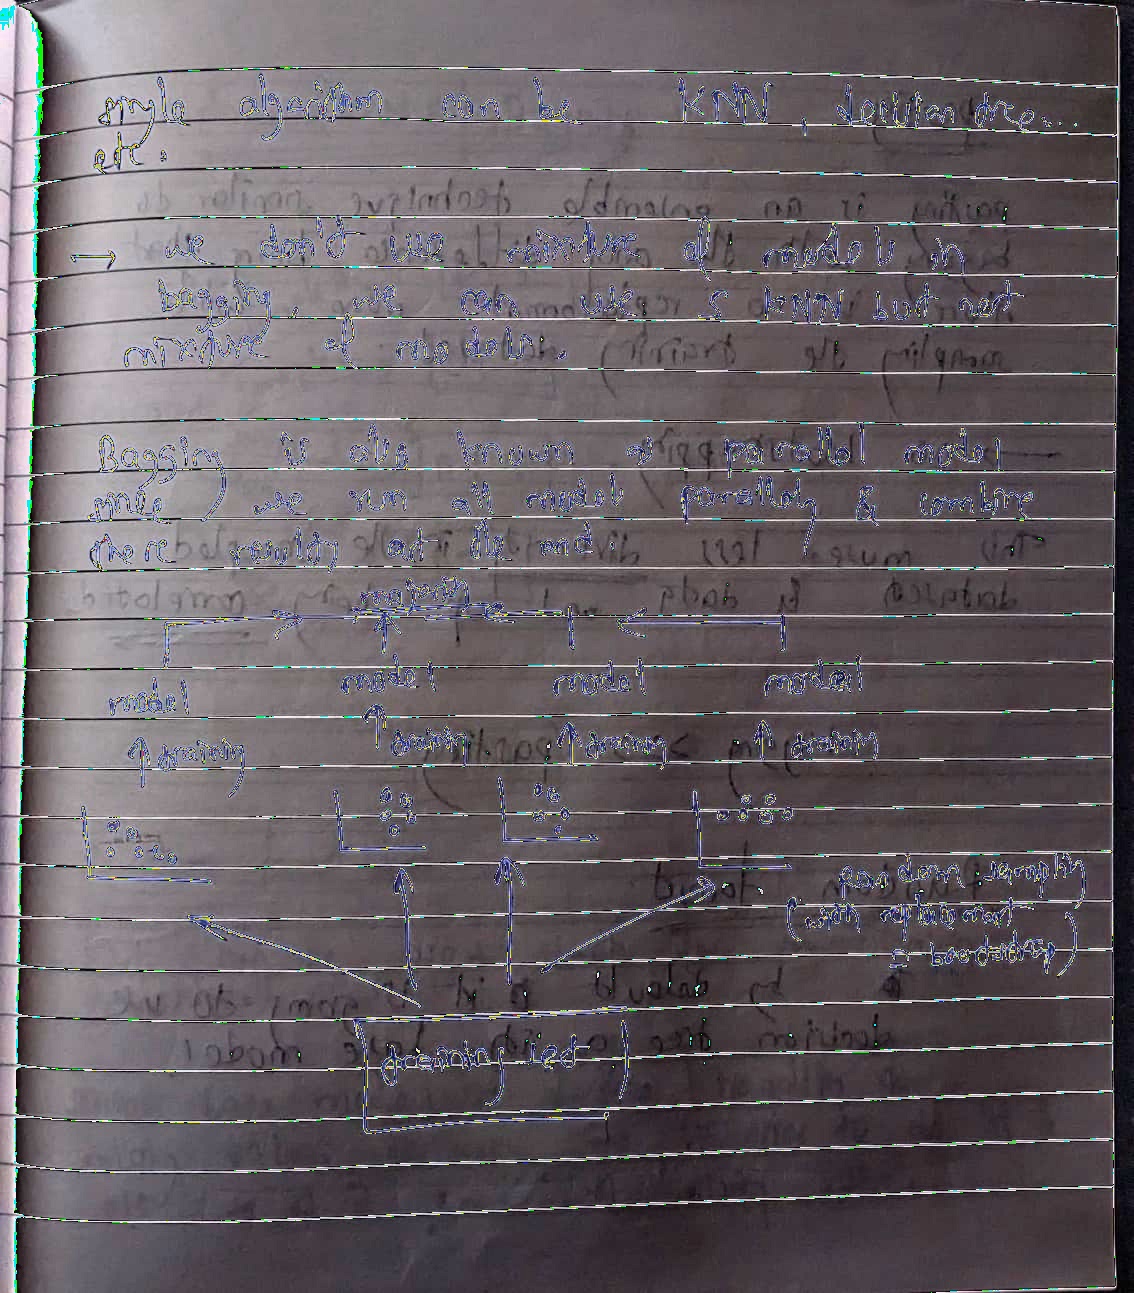 single algorithm can be KNN, decision tree...
etc.
→ we don't use mixture of models in
bagging, we can use 5 KNN but not
mixture of models.
Bagging is also known as parallel model
since we run all model parallely & combine
there results at the end.
majority
model model model model
↑ training ↑ training ↑ training ↑ training
random sampling
(with replacement
= bootstrap)
training set